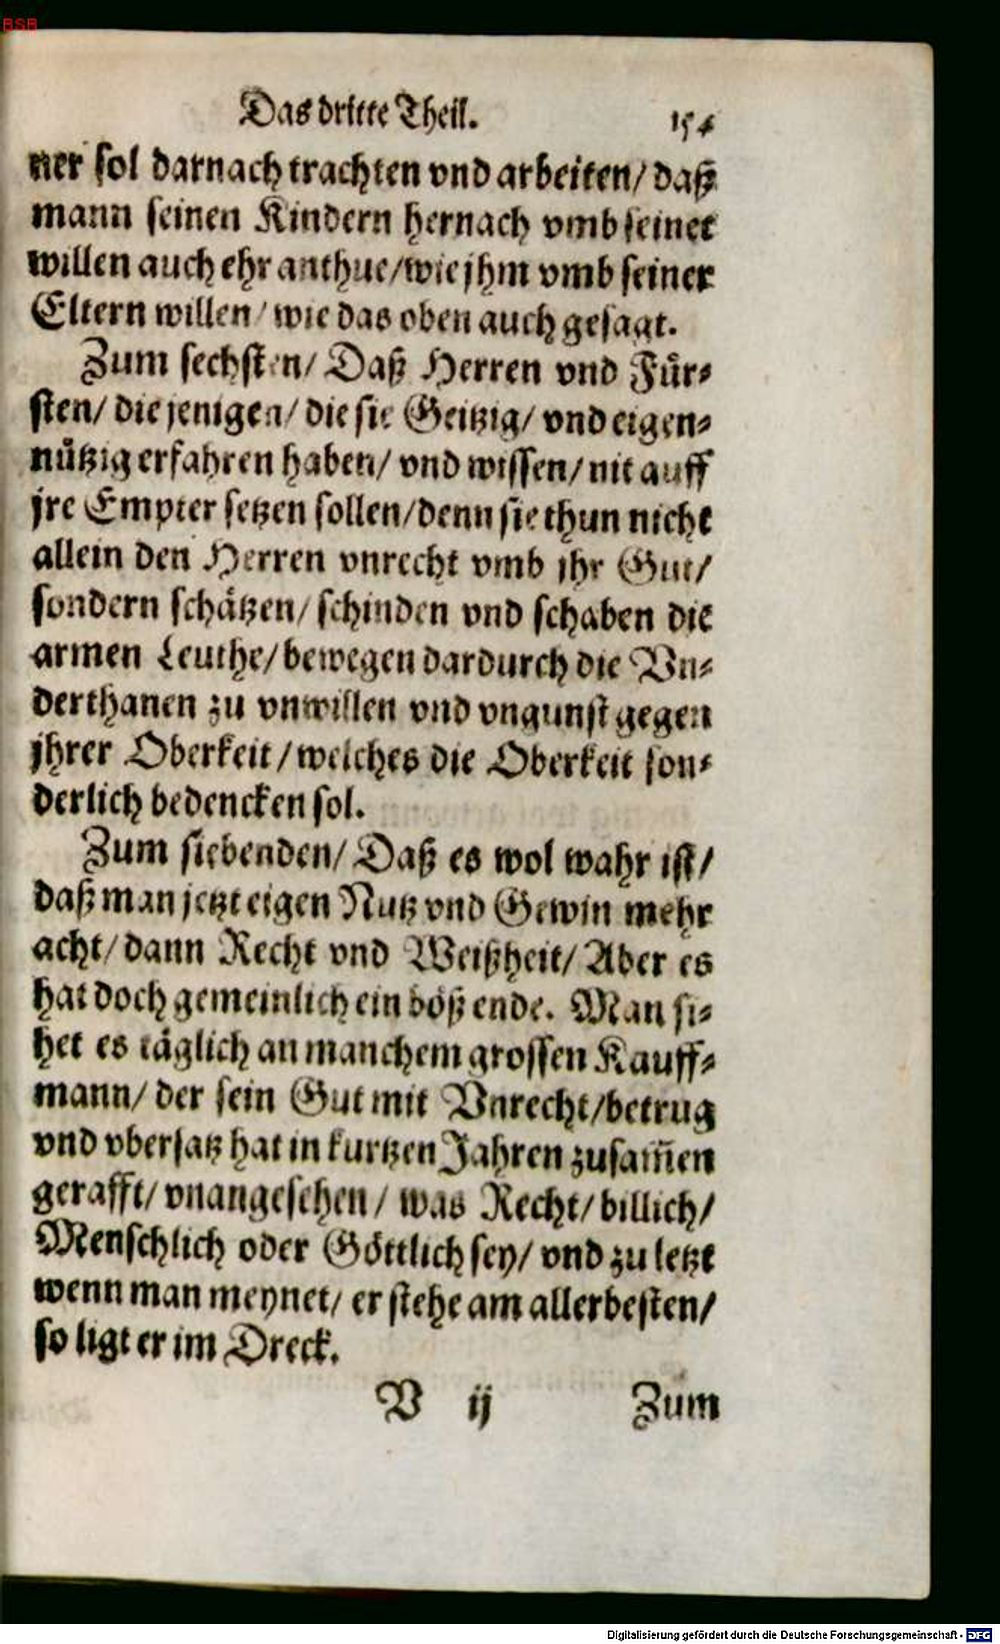 BSB
Das dritte Theil. 154
ner sol darnach trachten vnd arbeiten/ daß
mann seinen Kindern hernach vmb seinet
willen auch ehr anthue/wie jhm vmb seiner
Eltern willen/ wie das oben auch gesagt.
Zum sechsten/ Daß Herren vnd Fürsten/
sten/ die jenigen/ die sie Geitzig/ vnd eigen-
nützig erfahren haben/ vnd wissen/ nit auff
jre Empter setzen sollen/denn sie thun nicht
allein den Herren vnrecht vmb jhr Gut/
sondern schätzen/ schinden vnd schaben die
armen Leuthe/ bewegen dardurch die Vn-
derthanen zu vnwillen vnd vngunst gegen
jhrer Oberkeit/ welches die Oberkeit son-
derlich bedencken sol.
Zum siebenden/ Daß es wol wahr ist/
daß man jetzt eigen Nutz vnd Gewin mehr
acht/ dann Recht vnd Weißheit/ Aber es
hat doch gemeinlich ein böß ende. Man si-
het es täglich an manchem grossen Kauff-
mann/ der sein Gut mit Vnrecht/betrug
vnd vbersatz hat in kurtzen Jahren zusam̄en
gerafft/ vnangesehen/ was Recht/ billich/
Menschlich oder Göttlich sey/ vnd zu letzt
wenn man meynet/ er stehe am allerbesten/
so ligt er im Dreck.
V ij Zum
Digitalisierung gefördert durch die Deutsche Forschungsgemeinschaft - DFG